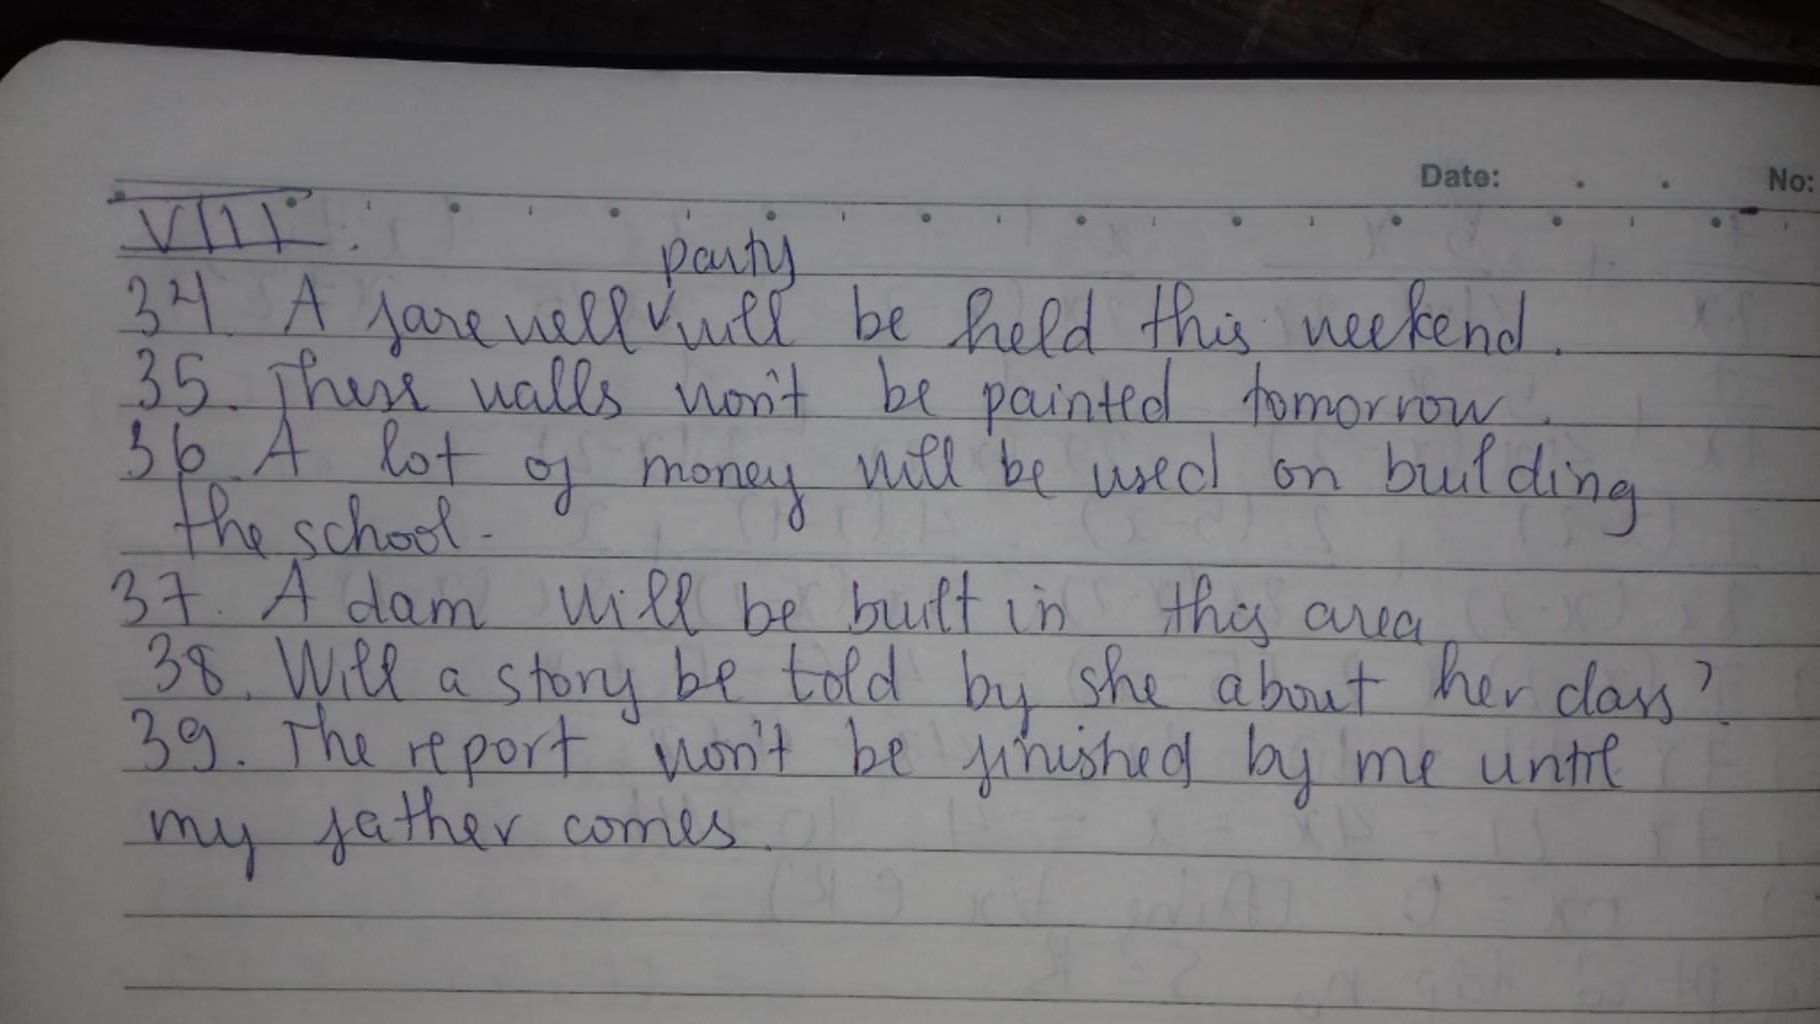 Date: No:
VIII.
party
34. A farewell ✓ will be held this weekend.
35. These walls won't be painted tomorrow.
36. A lot of money will be used on building
the school.
37. A dam will be built in this area
38. Will a story be told by she about her class?
39. The report won't be finished by me until
my father comes.